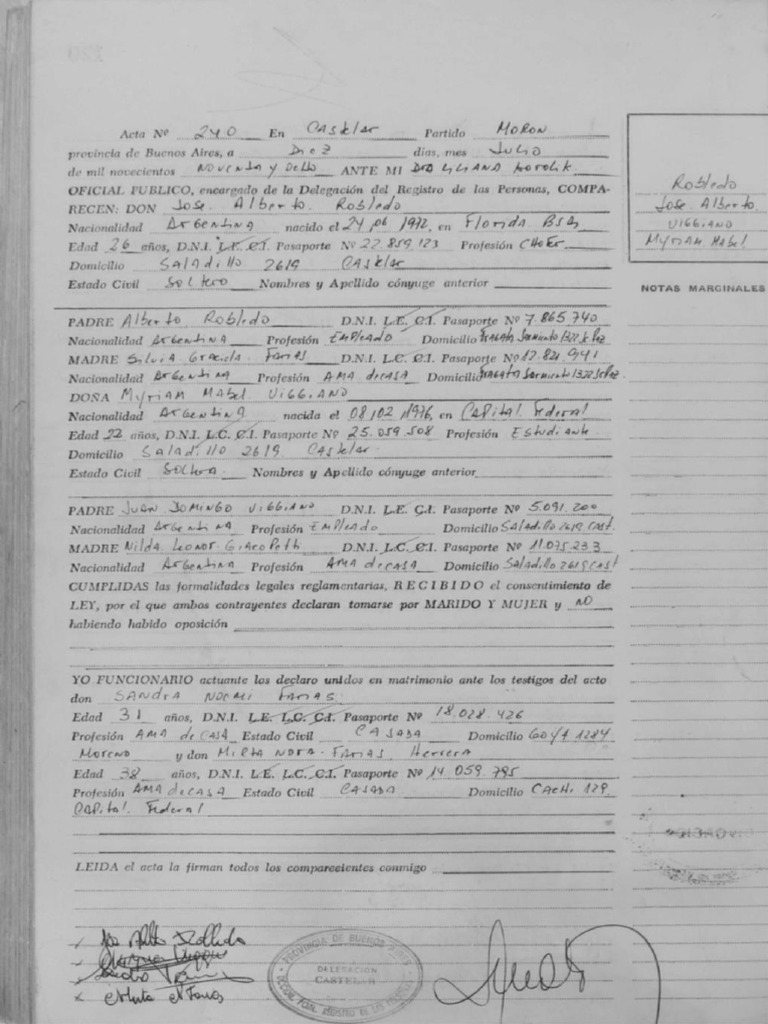 Acta Nº 240 En Castelar Partido MORON
provincia de Buenos Aires, a Diez días, mes Julio
de mil novecientos NOVENTA y Ocho ANTE MI Dra LILIANA
OFICIAL PUBLICO, encargado de la Delegación del Registro de las Personas, COMPA-
RECEN: DON Jose Alberto Robledo
Nacionalidad Argentina nacido el 24 06 1972, en Florida BsAs
Edad 26 años, D.N.I. L.E. C.I. Pasaporte Nº 22.859.123 Profesión CHOFER
Domicilio Saladillo 2619 Castelar
Estado Civil Soltero Nombres y Apellido cónyuge anterior
PADRE Alberto Robledo D.N.I. L.E. C.I. Pasaporte Nº 7.865.740
Nacionalidad Argentina Profesión EMPleado Domicilio Fragata Sarmiento 1322
MADRE Silvia Graciela Farias D.N.I. L.C. C.I. Pasaporte Nº 12.821.941
Nacionalidad Argentina Profesión AMA de CASA Domicilio Fragata Sarmiento 1322
DOÑA Myriam Mabel VIGGIANO
Nacionalidad Argentina nacida el 08.02.1976, en CAPital Federal
Edad 22 años, D.N.I. L.C. C.I. Pasaporte Nº 25.059.508 Profesión Estudiante
Domicilio Saladillo 2619 Castelar
Estado Civil Soltera Nombres y Apellido cónyuge anterior
PADRE Juan DOMINGO VIGGIANO D.N.I. L.E. C.I. Pasaporte Nº 5.091.200
Nacionalidad Argentina Profesión EMPleado Domicilio Saladillo 2619 Cast.
MADRE Nilda Leonor D.N.I. L.C. C.I. Pasaporte Nº 11.075.233
Nacionalidad Argentina Profesión AMA de casa Domicilio Saladillo 2619 Cast
CUMPLIDAS las formalidades legales reglamentarias, RECIBIDO el consentimiento de
LEY, por el que ambos contrayentes declaran tomarse por MARIDO Y MUJER y NO
habiendo habido oposición
YO FUNCIONARIO actuante los declaro unidos en matrimonio ante los testigos del acto
don SANDRA NOEMI Farias
Edad 31 años, D.N.I. L.E. L.C. C.I. Pasaporte Nº 18.028.426
Profesión AMA de CASA Estado Civil CASADA Domicilio GOYA 1284
Moreno y don Mirta Nora Farias Herrera
Edad 38 años, D.N.I. L.E. L.C. C.I. Pasaporte Nº 14.059.795
Profesión AMA de CASA Estado Civil CASADA Domicilio CACHI 129
CAPital Federal
LEIDA el acta la firman todos los comparecientes conmigo
PROVINCIA DE BUENOS AIRES
DELEGACION
CASTELAR
Robledo
Jose Alberto
VIGGIANO
Myriam Mabel
NOTAS MARGINALES